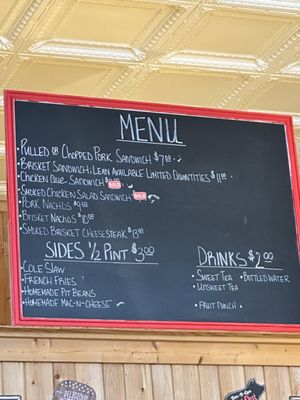 MENU
• PULLED OR CHOPPED PORK SANDWICH $7.00
• BRISKET SANDWICH; LEAN AVAILABLE LIMITED QUANTITIES $11.00
• CHICKEN QUE SANDWICH SOLD
• SMOKED CHICKEN SALAD SANDWICH SOLD
• PORK NACHOS $9.00
• BRISKET NACHOS $10.00
• SMOKED BRISKET CHEESESTEAK $13.00
SIDES 1/2 PINT $3.00
• COLE SLAW
• FRENCH FRIES
• HOMEMADE PIT BEANS
• HOMEMADE MAC-N-CHEESE
DRINKS $2.00
• SWEET TEA • BOTTLED WATER
• UNSWEET TEA
• FRUIT PUNCH